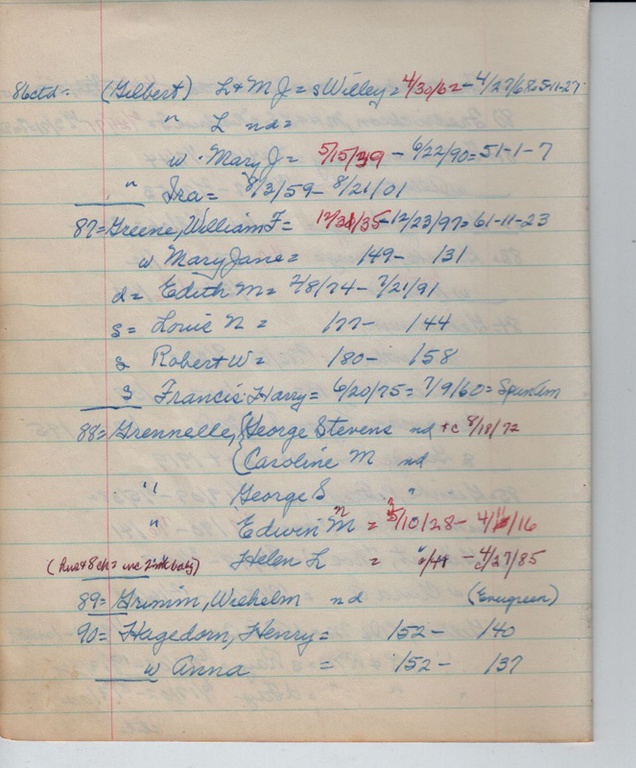 86ctd. (Gilbert) L + M J = s Willey = 4/30/62 - 4/27/68=5-11-27
" L nd =
w. Mary J = 5/15/39 - 6/22/90 = 51-1-7
" Ira = 8/3/59 - 8/21/01
87 = Greene, William F = 12/31/35 - 12/23/97 = 61-11-23
w Mary Jane = /49 - /31
d = Edith M = 2/8/74 - 7/21/91
s = Louis N = /77 - /44
s Robert W = /80 - /58
s Francis Harry = 6/20/75 = 7/9/60 =
88 = Grennelle, {George Stevens nd + c 8/18/72
{Caroline M nd
" George S "
" Edwin M = /10/28 - 4/ /16
Helen L = /41 - 4/27/85
89 = Grimm, Wilhelm nd (Evergreen)
90 = Hagedorn, Henry = /52 - /40
w Anna = /52 - /37